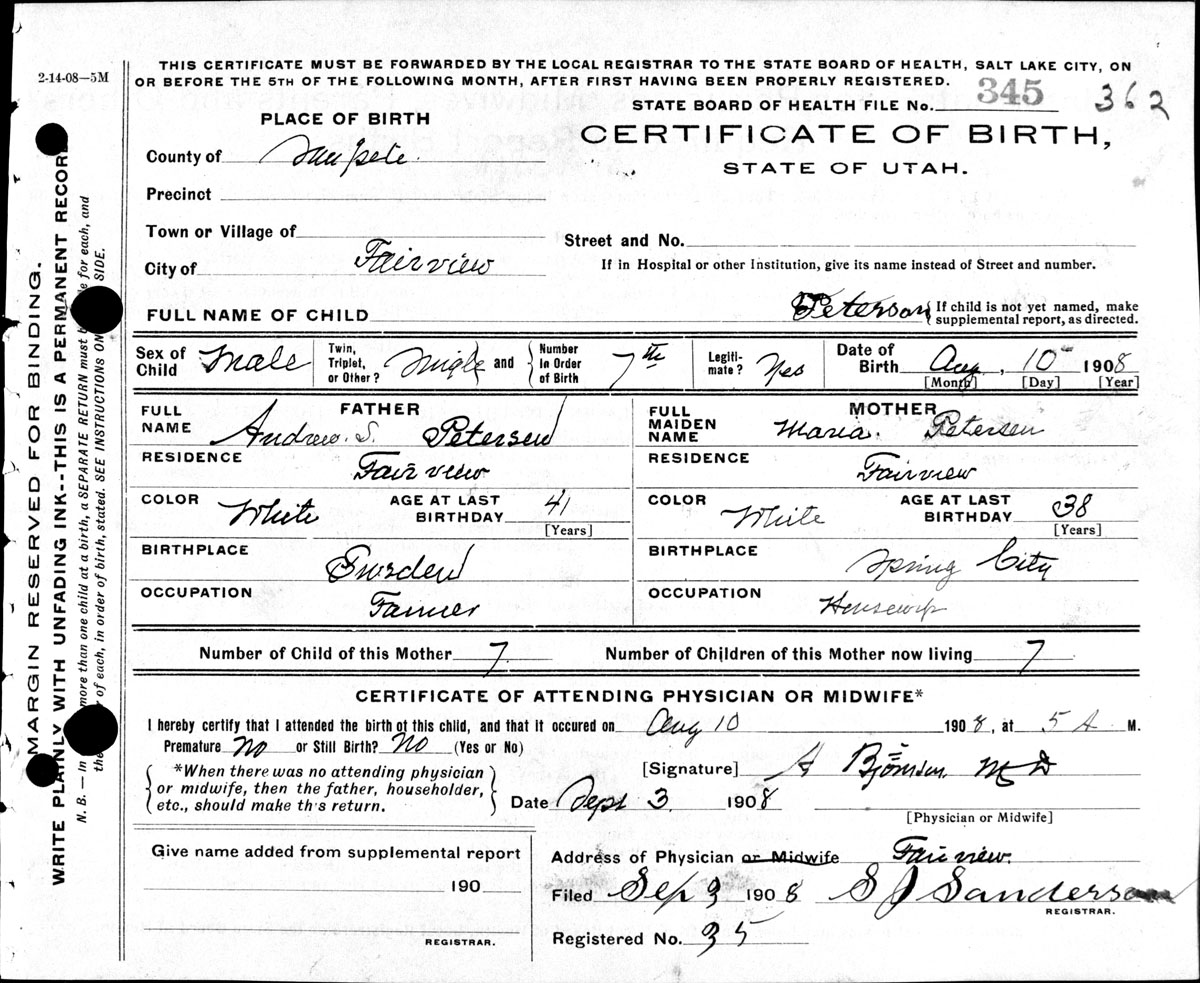 2-14-08—5M
THIS CERTIFICATE MUST BE FORWARDED BY THE LOCAL REGISTRAR TO THE STATE BOARD OF HEALTH, SALT LAKE CITY, ON
OR BEFORE THE 5TH OF THE FOLLOWING MONTH, AFTER FIRST HAVING BEEN PROPERLY REGISTERED.
STATE BOARD OF HEALTH FILE No. 345 362
PLACE OF BIRTH
CERTIFICATE OF BIRTH,
STATE OF UTAH.
County of Sanpete.
Precinct
Town or Village of
Street and No.
City of Fairview
If in Hospital or other Institution, give its name instead of Street and number.
FULL NAME OF CHILD Peterson { If child is not yet named, make
supplemental report, as directed.
Sex of Child Male
Twin, Triplet, or Other? Single } and { Number In Order of Birth 7th
Legiti- mate? Yes
Date of Birth Aug, 10 1908
[Month] [Day] [Year]
FATHER
FULL NAME Andrew. S. Petersen
RESIDENCE Fairview
COLOR White AGE AT LAST BIRTHDAY 41
[Years]
BIRTHPLACE Sweden
OCCUPATION Farmer
MOTHER
FULL MAIDEN NAME Maria. Petersen
RESIDENCE Fairview
COLOR White AGE AT LAST BIRTHDAY 38
[Years]
BIRTHPLACE Spring City
OCCUPATION Housewife
Number of Child of this Mother 7. Number of Children of this Mother now living 7
CERTIFICATE OF ATTENDING PHYSICIAN OR MIDWIFE*
I hereby certify that I attended the birth of this child, and that it occured on Aug 10 1908, at 5 A M.
Premature No or Still Birth? No (Yes or No)
{ *When there was no attending physician
or midwife, then the father, householder,
etc., should make th's return. }
[Signature] A Bjornson MD
Date Sept 3. 1908
[Physician or Midwife]
Give name added from supplemental report
190
REGISTRAR.
Address of Physician or Midwife Fairview.
Filed Sep 3 1908 S J Sanderson
REGISTRAR.
Registered No. 35
MARGIN RESERVED FOR BINDING.
WRITE PLAINLY WITH UNFADING INK--THIS IS A PERMANENT RECORD
N. B.—In more than one child at a birth, a SEPARATE RETURN must be made for each, and
the of each, in order of birth, stated. SEE INSTRUCTIONS ON SIDE.